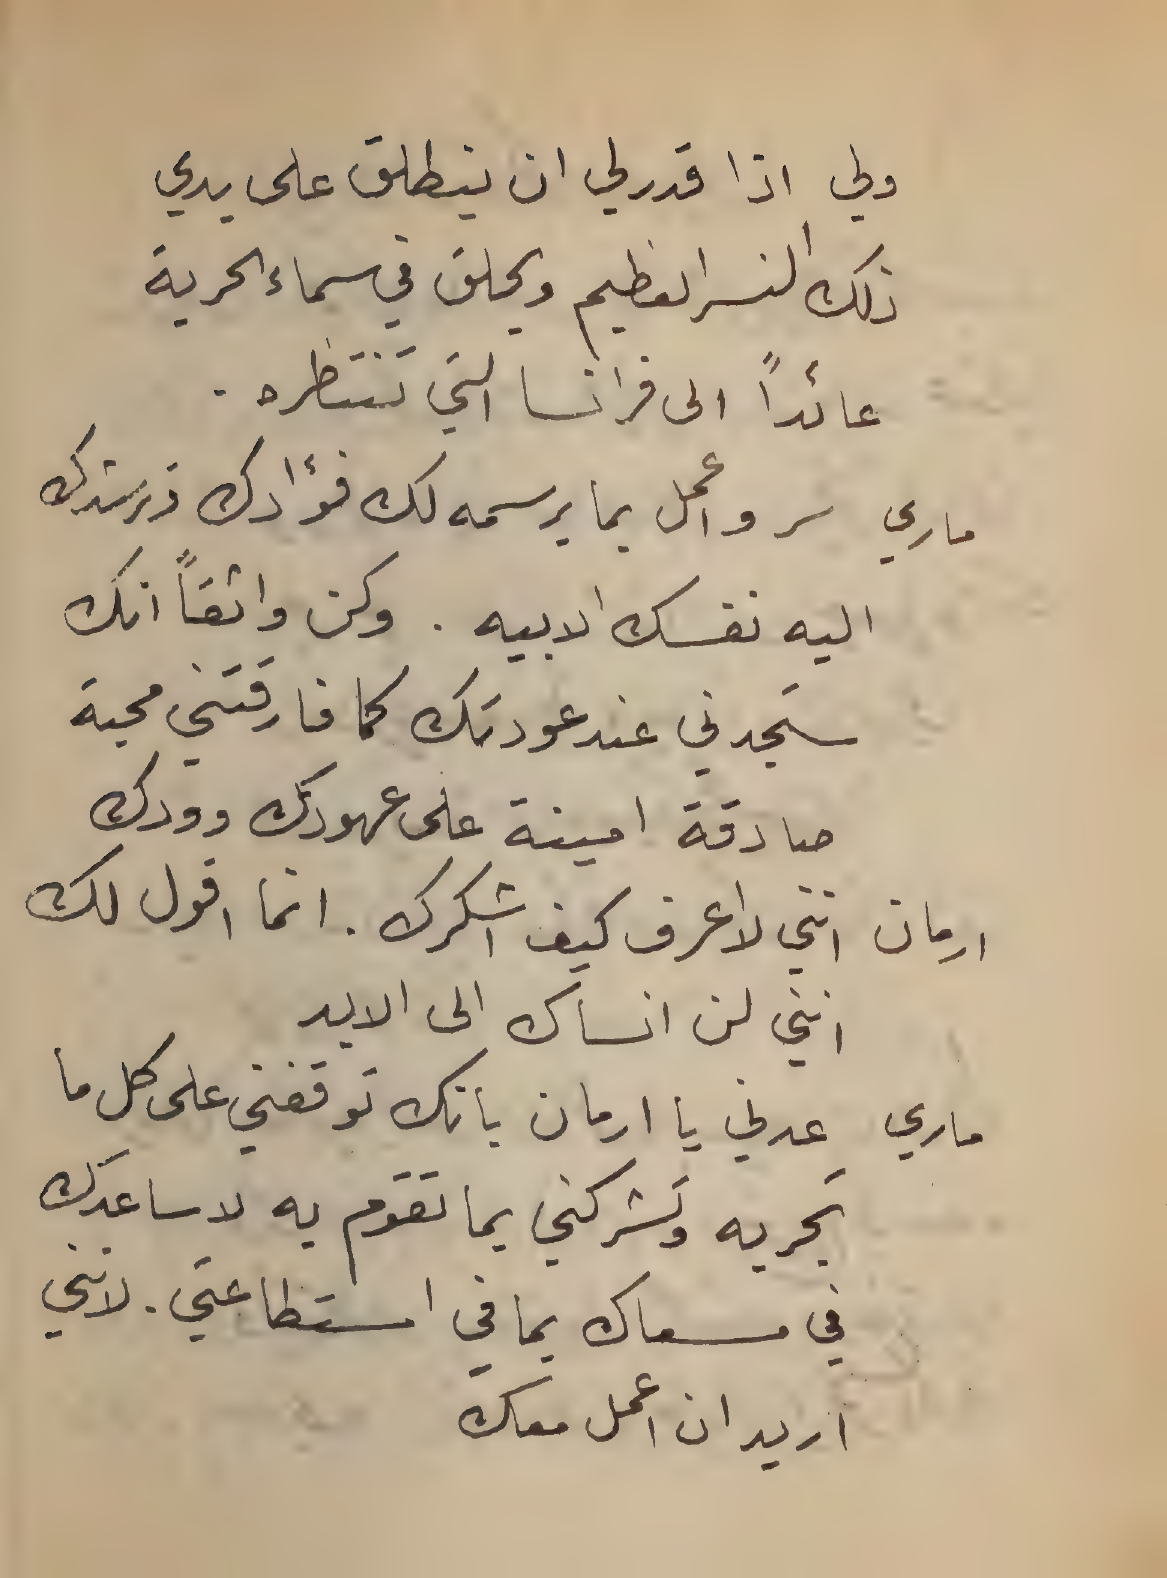 ولي اذا قدر لي ان ينطلق على يدي
ذلك النسر العظيم ويحلق في سماء الحرية
عائداً الى فرانسا التي تنتظره .
ماري سر واعمل بما يرسمه لك فؤادك وترشدك
اليه نفسك الابيه . وكن واثقاً انك
ستجدني عند عودتك كما فارقتني محبة
صادقة امينة على عهودك وودك
ارمان انني لا اعرف كيف اشكرك . انما اقول لك
انني لن انساك الى الابد
ماري عدني يا ارمان بانك توقفني على كل ما
تجريه وتشركني بما تقوم به لاساعدك
في مسعاك بما في استطاعتي . لانني
اريد ان اعمل معك